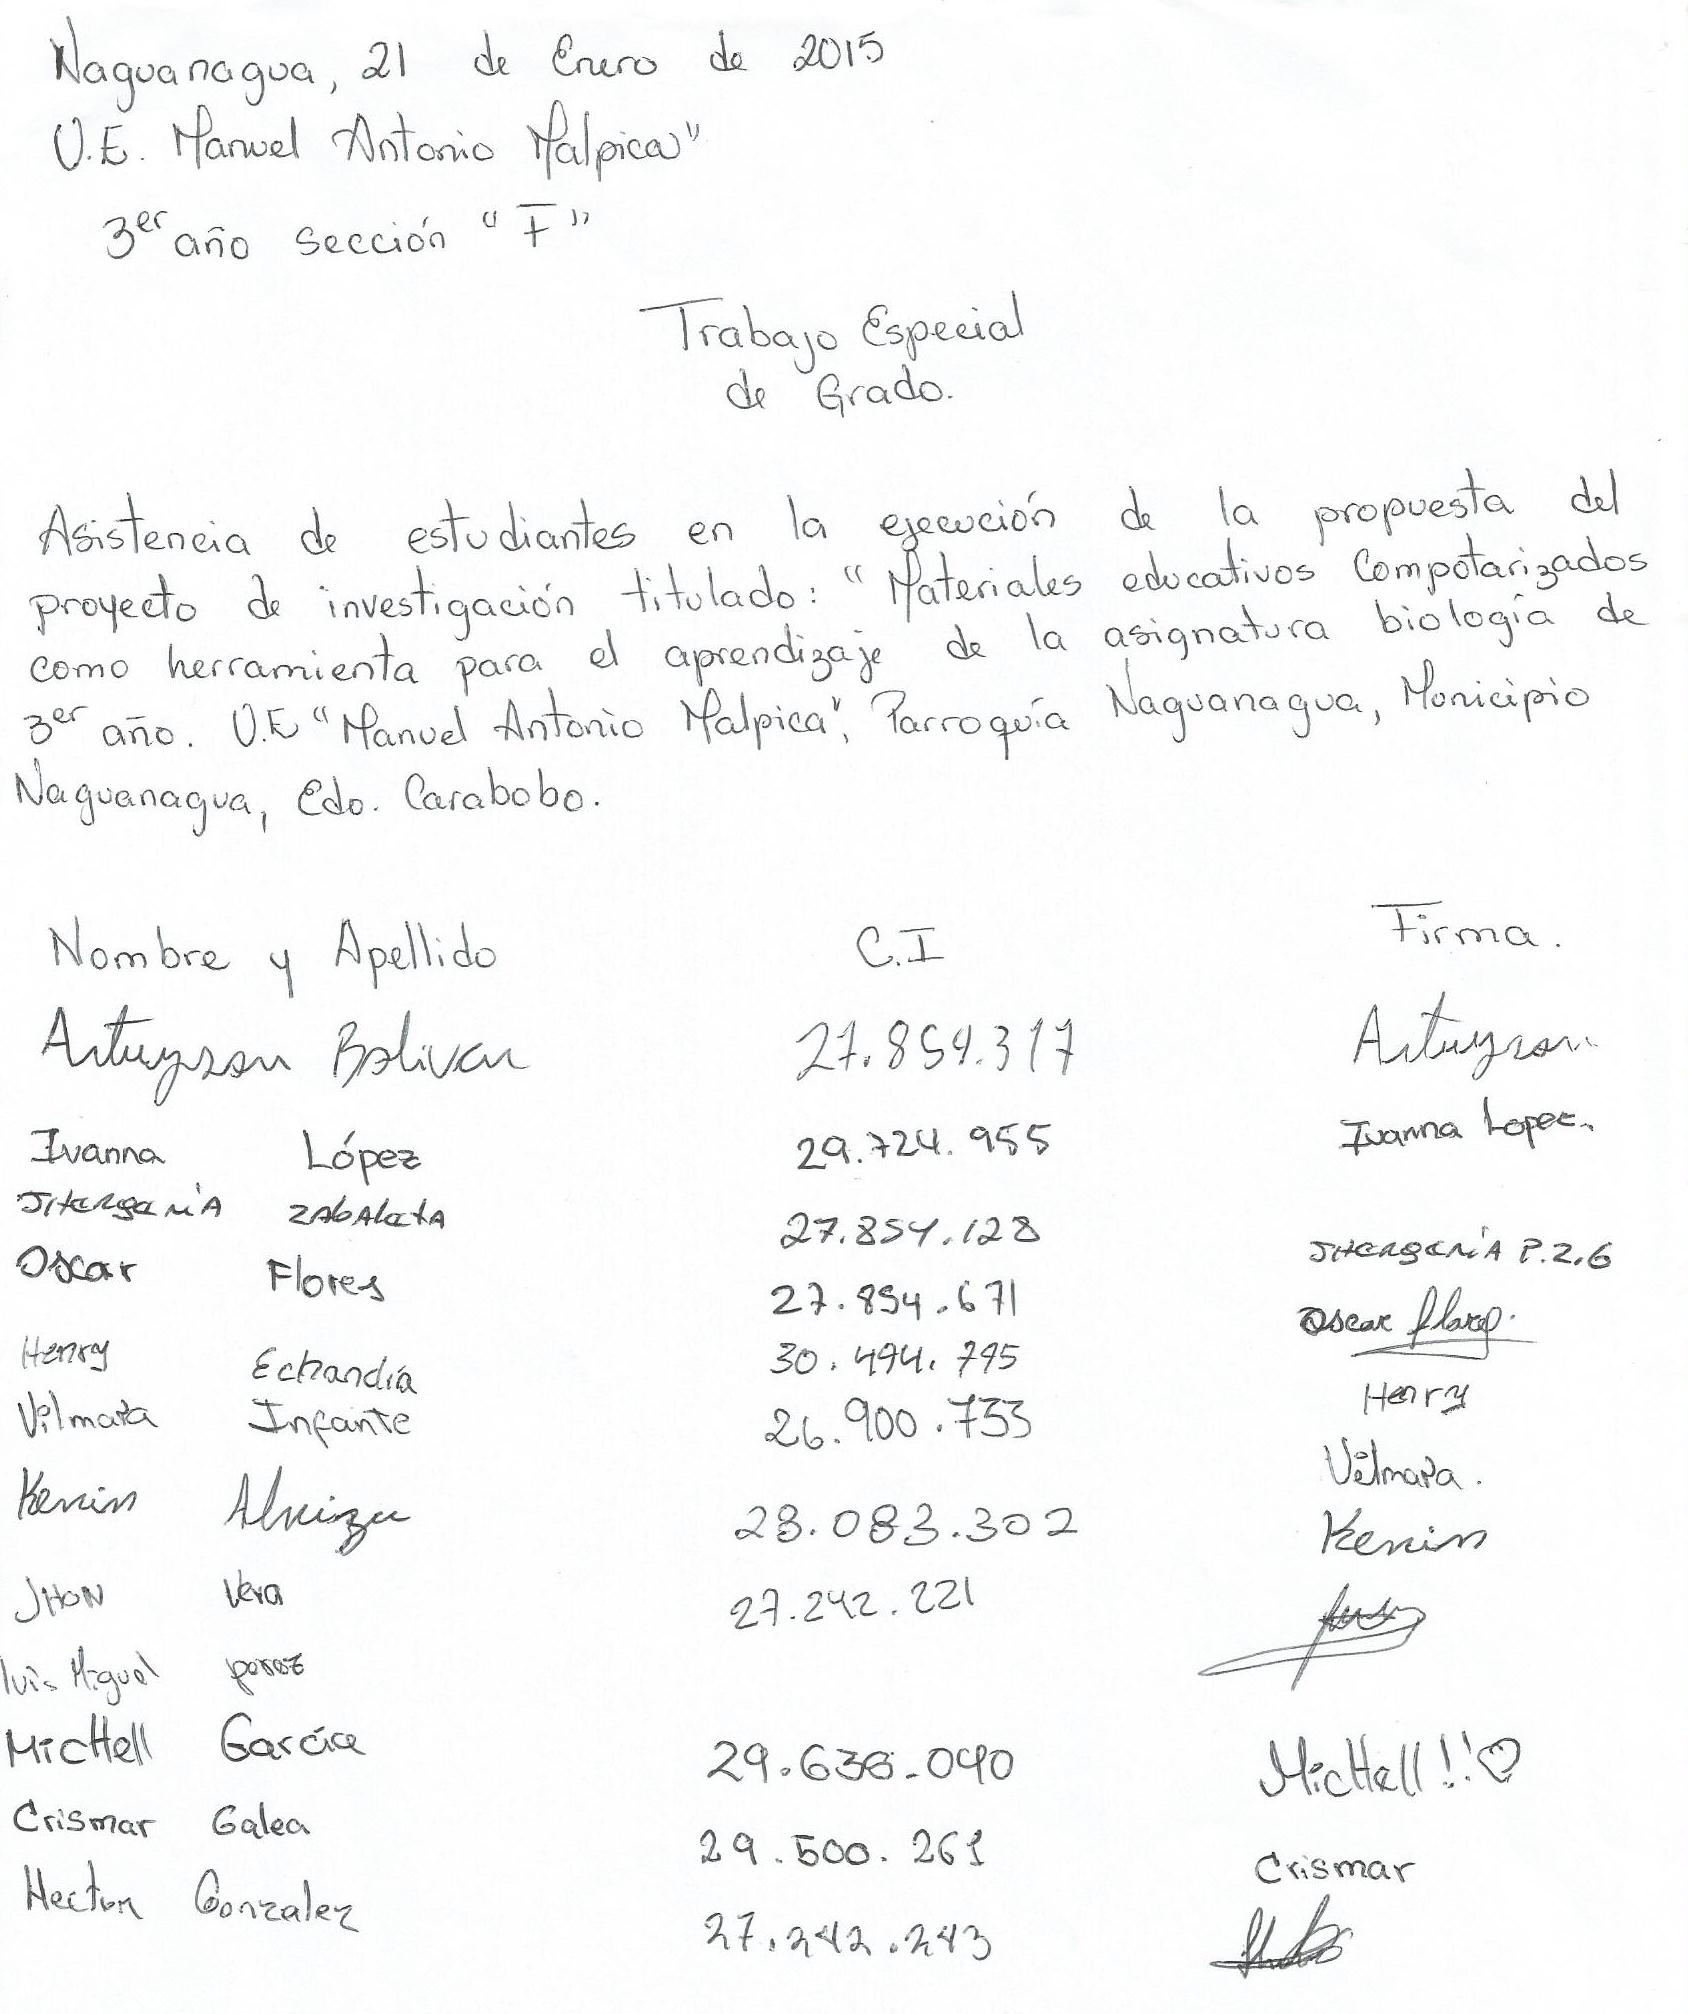 Naguanagua, 21 de Enero de 2015
U.E. Manuel Antonio Malpica"
3er año sección "F"
Trabajo Especial
de Grado.
Asistencia de estudiantes en la ejecución de la propuesta del
proyecto de investigación titulado: "Materiales educativos Compotarizados
como herramienta para el aprendizaje de la asignatura biología de
3er año. U.E "Manuel Antonio Malpica", Parroquía Naguanagua, Municipio
Naguanagua, Edo. Carabobo.
Nombre y Apellido C.I Firma.
Artuyson Bolivar 27.859.317 Artuyson
Ivanna López 29.724.955 Ivanna Lopez.
ZABAletA 27.854.128 P.Z.G
Oscar Flores 27.854.671 Oscar flores.
Henry Echandía 30.494.795 Henry
Vilmara Infante 26.900.733 Vilmara.
Kenin 28.083.302 Kenin
JHON Vera 27.242.221
luis Miguel perez
MicHell García 29.636.040 MicHell!!♡
Crismar Galea 29.500.261 Crismar
Hector Gonzalez 27.242.243